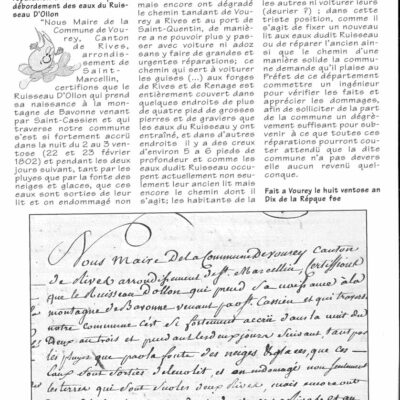 débordement des eaux du Ruis-
seau D'Ollon
"Nous Maire de la
Commune de Vou-
rey, Canton
de Rives,
arrondis-
sement de
Saint-
Marcellin,
certifions que le
Ruisseau D'Ollon qui prend
sa naissance à la mon-
tagne de Bavonne venant
par Saint-Cassien et qui
traverse notre commune
s'est si fortement accrü
dans la nuit du 2 au 3 ven-
tose (22 et 23 février
1802) et pendant les deux
jours suivant, tant par les
pluyes que par la fonte des
neiges et glaces, que ces
eaux sont sorties de leur
lit et on endommagé non
mais encore ont dégradé
le chemin tandant de Vou-
rey a Rives et au port de
Saint-Quentin, de maniè-
re de ne pouvoir n'y pas-
ser avec voiture ni adoz
sans y faire de grandes et
urgentes réparations; ce
chemin qui sert à voiturer
les guises (...) aux forges
de Rives et de Renage est
entièrement couvert dans
quelques endroits de plus
de quatre pied de grosses
pierres et de graviers que
les eaux du Ruisseau y ont
entraîné, et dans d'autres
endroits il y a des creux
d'environ 5 a 6 pieds de
profondeur et comme les
eaux dudit Ruisseau occu-
pent actuellement non seu-
lement leur ancien lit mais
encore le chemin dont il
s'agit; les habitants de la
ries ni voiturer leurs
(deurler ?) : dans cette
triste position, comme il
s'agit de fixer un nouveau
lit aux eaux dudit Ruisseau
ou de réparer l'ancien ain-
si que le chemin d'une
manière solide la commu-
ne désirerait qu'il plaise au
Préfet de ce département
commettre un ingénieur
pour vérifier les faits et
apprécier les dommages,
afin de solliciter de la part
de la commune un dégrè-
vement suffisant pour sub-
venir à ce que toutes ces
réparations pourront cou-
ter attendu que la dite
commune n'a pas devers
elle aucun revenu quel-
conque.
Fait a Vourey le huit ventose an
Dix de la Répque fse
Nous Maire De la Commune De vourey canton
de Rives arrondissement de St. Marcellin, Certiffions
que le Ruisseau D'ollon qui prend sa naissance à la
montagne de Bavonne venant par St Cassien et qui travers
notre commune s'est si fortement accrüe dans la nuit du
Deux au trois et pendant les deux jours suivant tant par
les pluyes que par la fonte des neiges & glaces, que ces
eaux sont sorties de leur lit, et on endomagé non seulement
les terres qui sont sur les deux Rives, mais encore ont